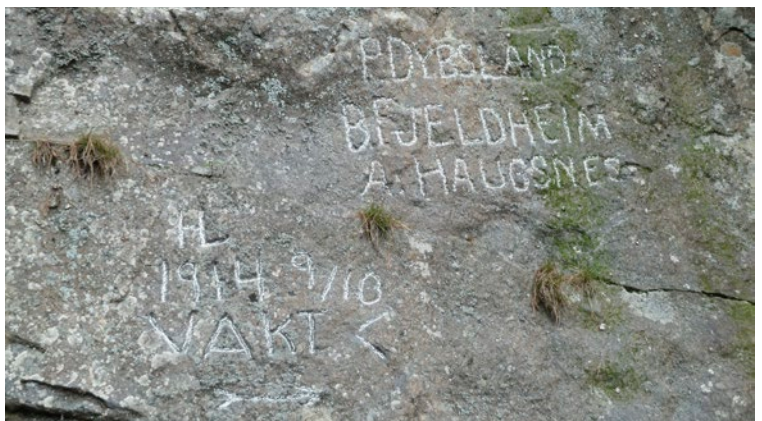 P DYBSLAND
B FJELDHEIM
A. HAUGSNES
HL
1914 9/10
VAKT <